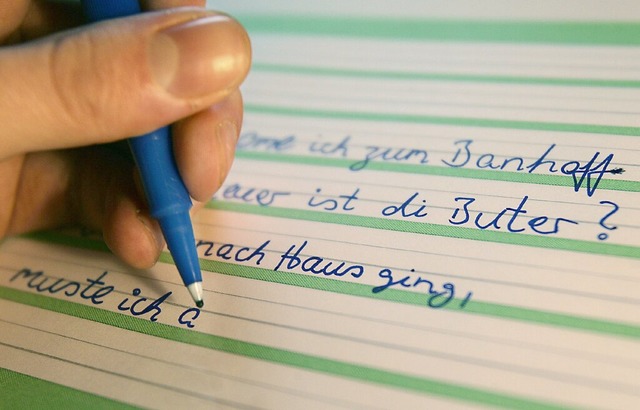 ich zum Banhoff
ist di Buter?
nach Haus ging,
muste ich a